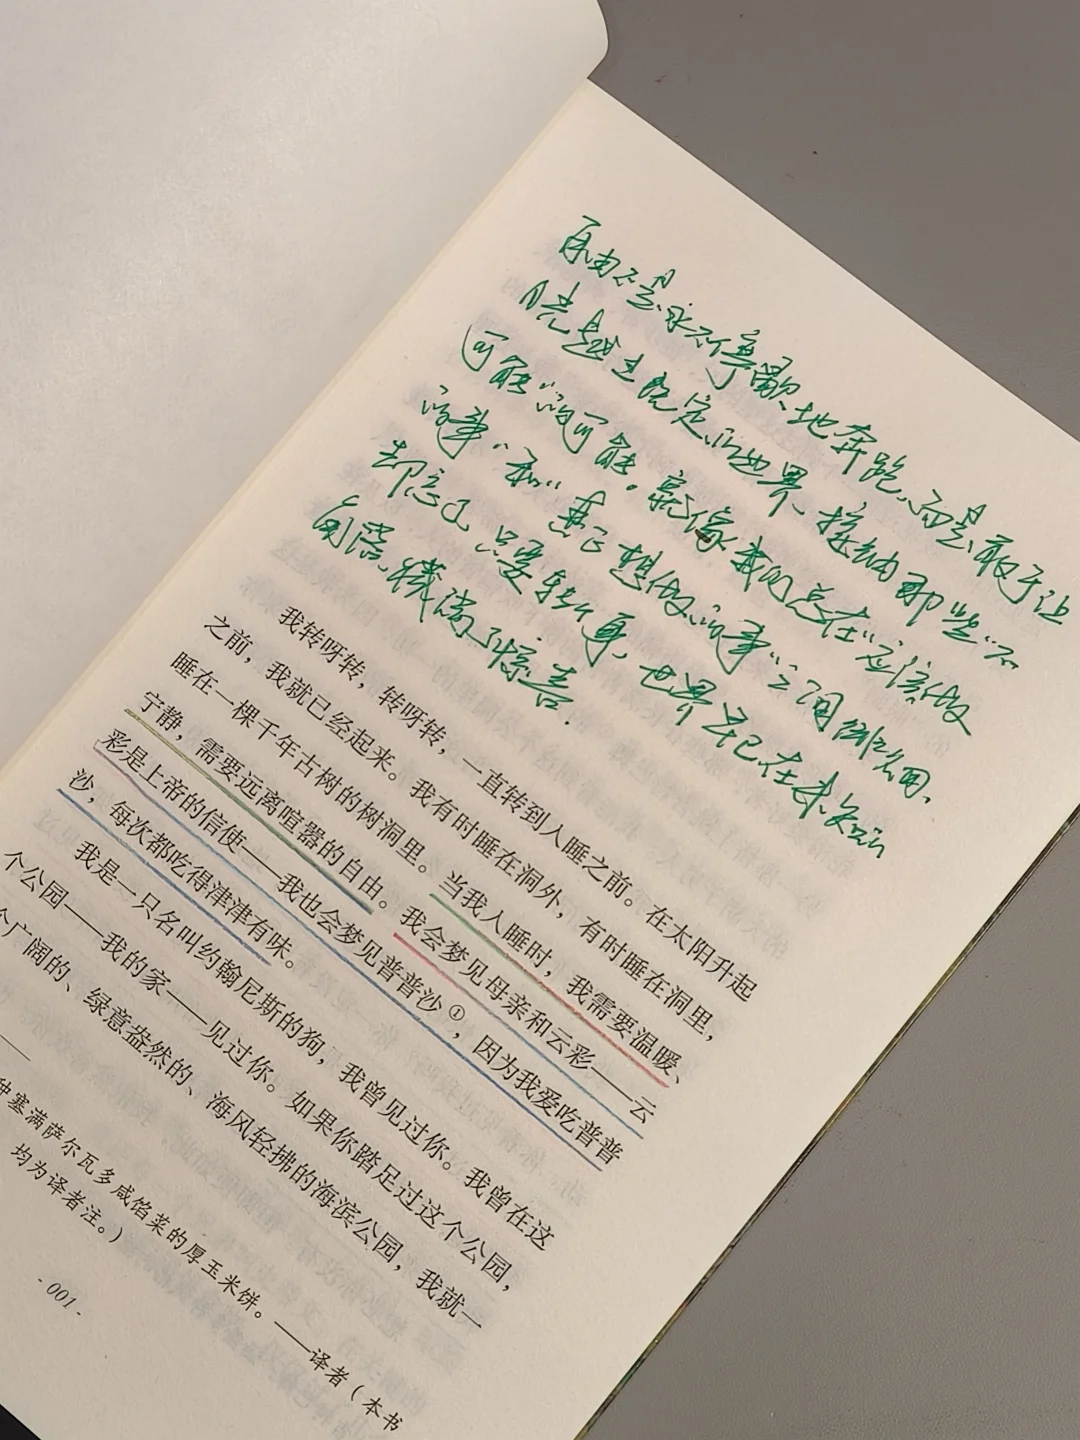 自由不是永不停歇地奔跑，而是敢于让
目光越过既定的世界、接纳那些“不
可能”的可能。就像我们总在“应该做
的事”和“真正想做的事”之间徘徊，
却忘了只要转身，世界早已在未知的
角落藏满了惊喜.
我转呀转，转呀转，一直转到入睡之前。在太阳升起
之前，我就已经起来。我有时睡在洞外，有时睡在洞里，
睡在一棵千年古树的树洞里。当我入睡时，我需要温暖、
宁静，需要远离喧嚣的自由。我会梦见母亲和云彩——云
彩是上帝的信使——我也会梦见普普沙①，因为我爱吃普普
沙，每次都吃得津津有味。
我是一只名叫约翰尼斯的狗，我曾见过你。我曾在这
个公园——我的家——见过你。如果你踏足过这个公园，
个广阔的、绿意盎然的、海风轻拂的海滨公园，我就一
种塞满萨尔瓦多咸馅菜的厚玉米饼。——译者（本书
均为译者注。）
- 001 -